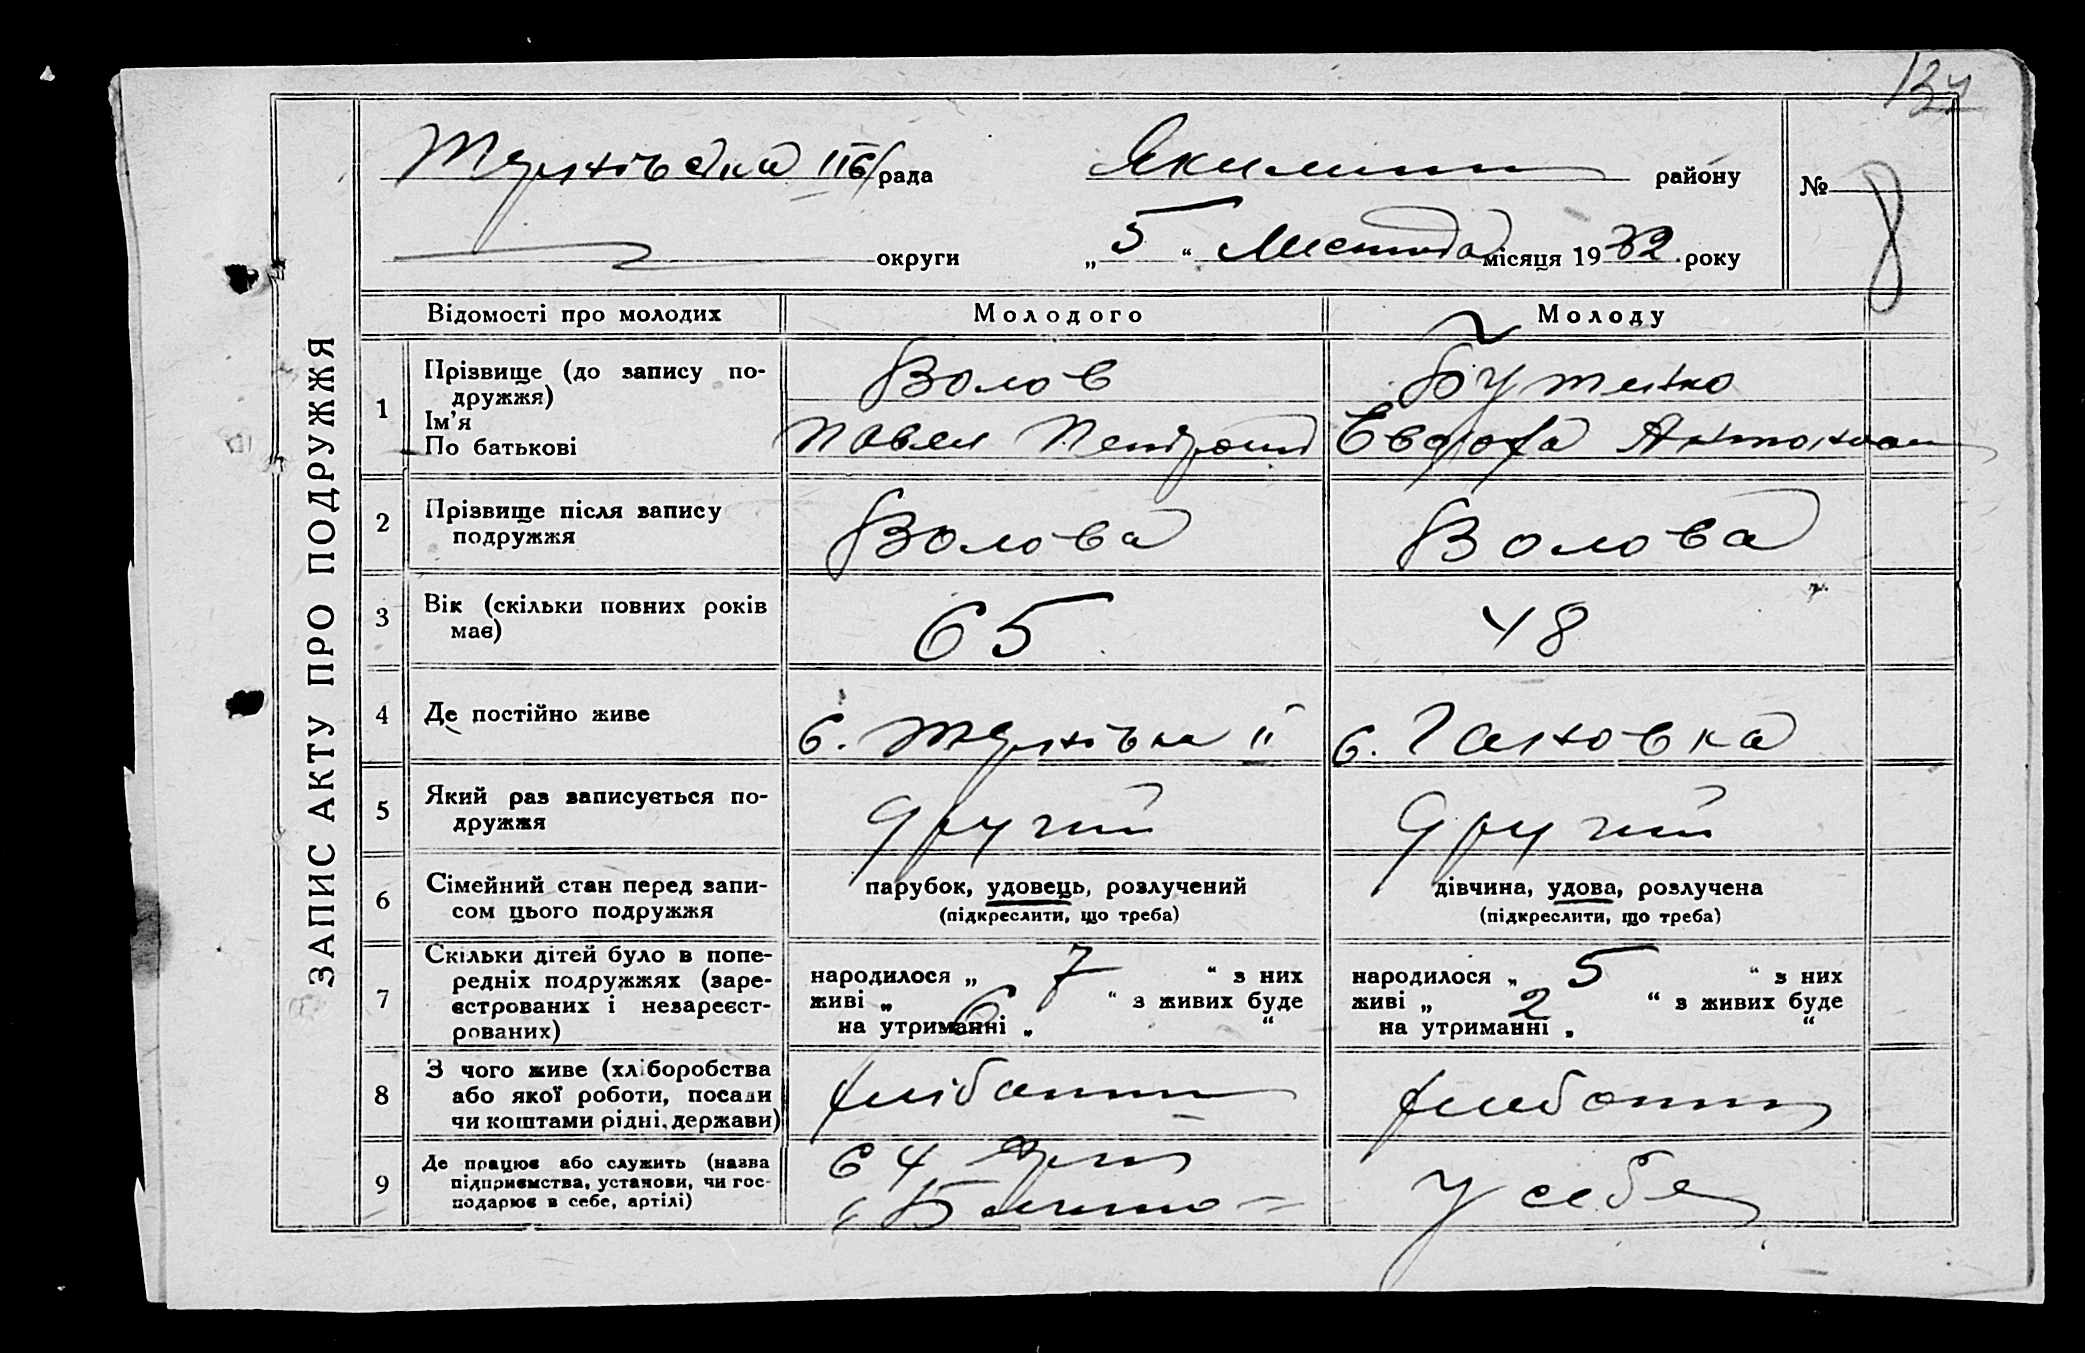 137
рада
району
№ 8
округи
„ 5 “ місяця 1932 року
ЗАПИС АКТУ ПРО ПОДРУЖЖЯ
Відомості про молодих Молодого Молоду
1 Прізвище (до запису по-
дружжя) Волов Бутенко
Ім’я
По батькові Павел
2 Прізвище після запису
подружжя Волова Волова
3 Вік (скільки повних років
має) 65 48
4 Де постійно живе
5 Який раз записується по-
дружжя другий другий
6 Сімейний стан перед запи-
сом цього подружжя
парубок, удовець, розлучений
(підкреслити, що треба)
дівчина, удова, розлучена
(підкреслити, що треба)
7 Скільки дітей було в попе-
редніх подружжях (заре-
єстрованих і незареєст-
рованих)
народилося „ 7 “ з них
живі „ 6 “ з живих буде
на утриманні „ “
народилося „ 5 “ з них
живі „ 2 “ з живих буде
на утриманні „ “
8 З чого живе (хліборобства
або якої роботи, посади
чи коштами рідні, держави)
9 Де працює або служить (назва
підприємства, установи, чи гос-
подарює в себе, артілі)
у себе